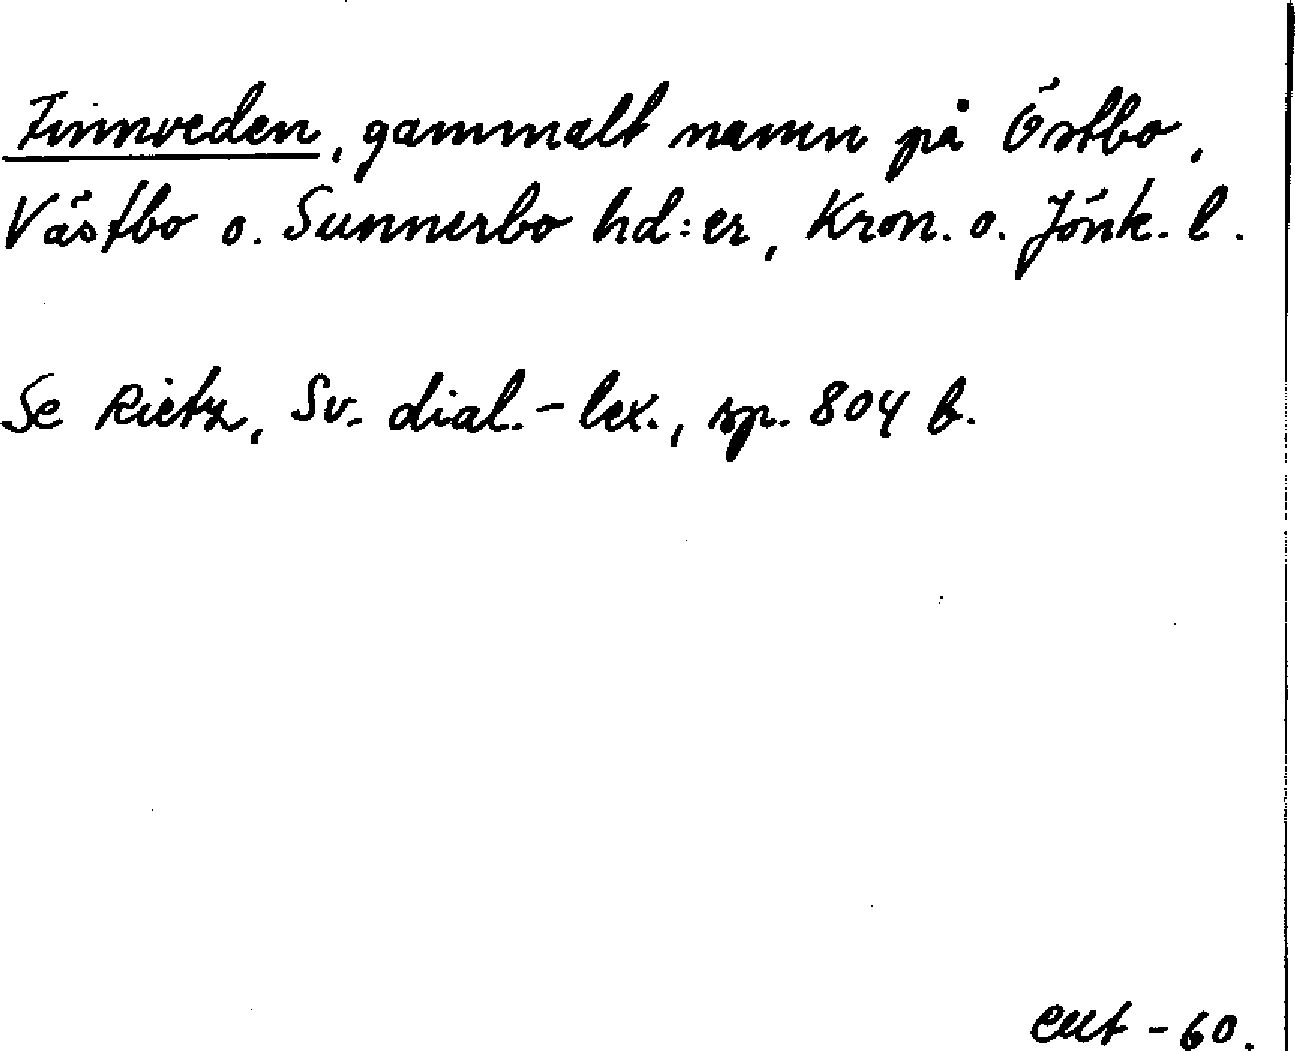 Finnveden, gammalt namn på Östbo,
Västbo o. Sunnerbo hd:er, Kron. o. Jönk. l.
Se Rietz, Sv. dial.-lex., sp. 804 b.
-60.